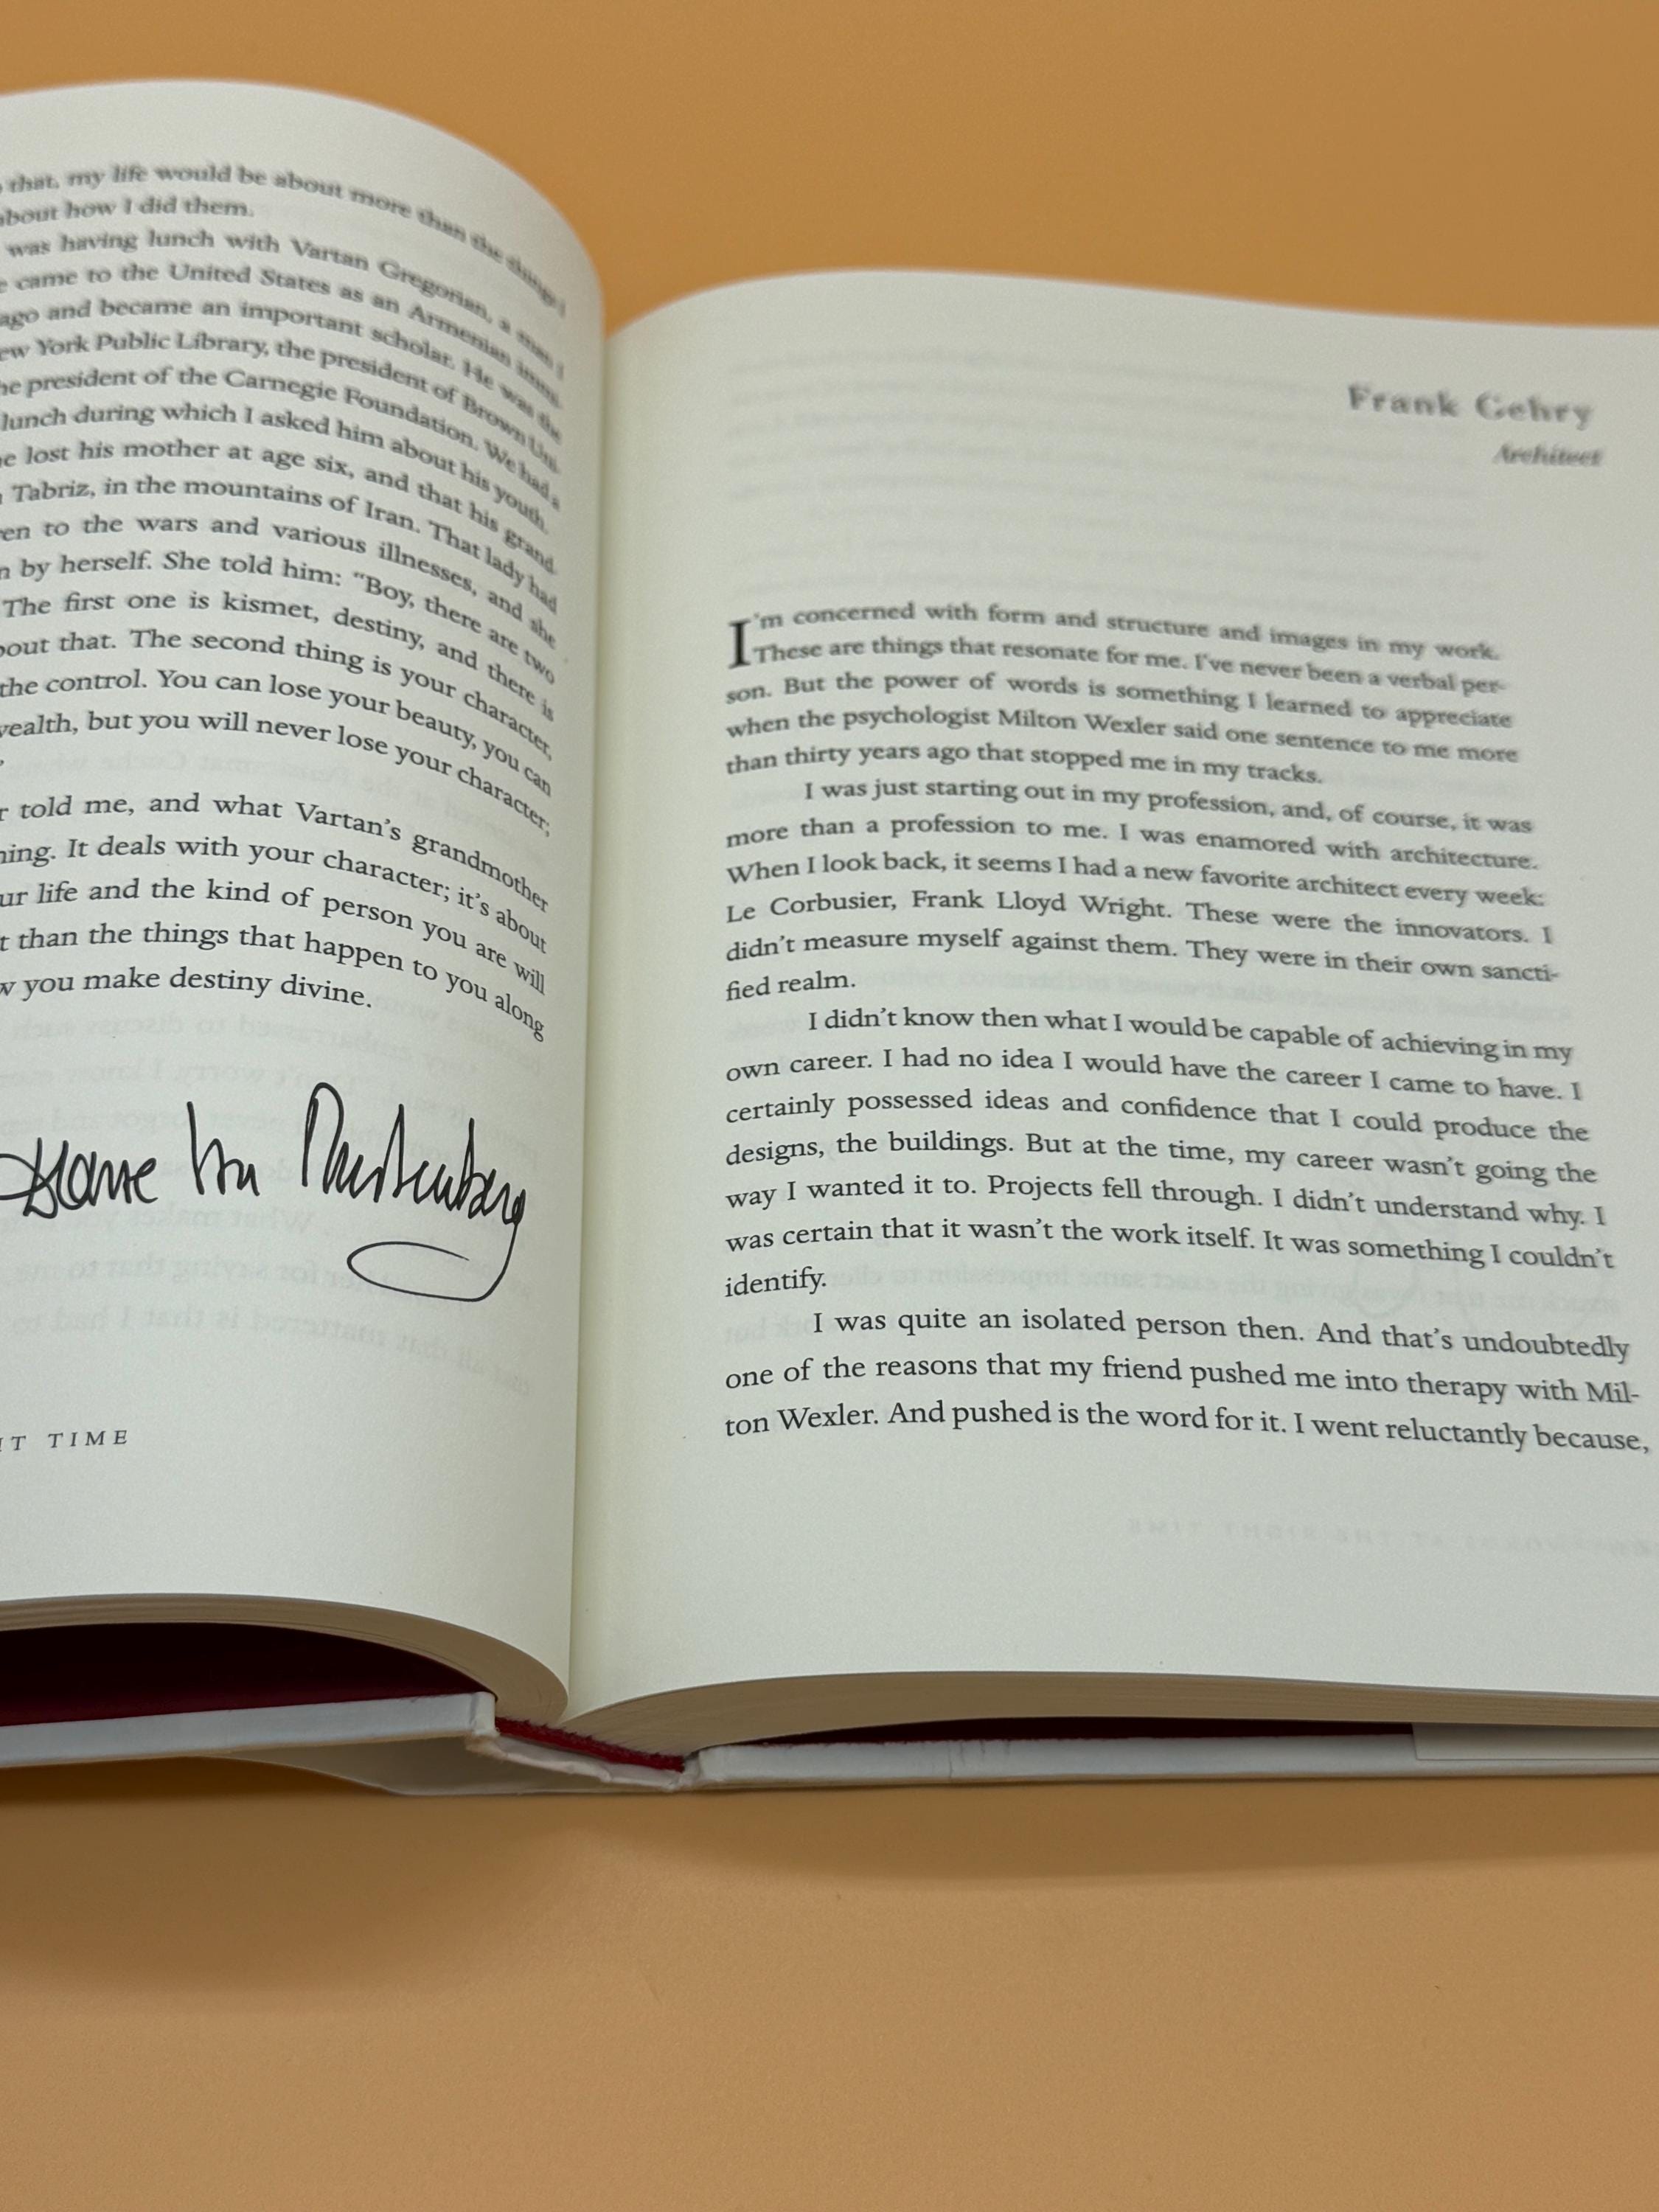 that, my life would be about more than the things I
about how I did them.
was having lunch with Vartan Gregorian, a man I
came to the United States as an Armenian immi-
ago and became an important scholar. He was the
ew York Public Library, the president of Brown Uni-
he president of the Carnegie Foundation. We had a
lunch during which I asked him about his youth.
e lost his mother at age six, and that his grand-
Tabriz, in the mountains of Iran. That lady had
en to the wars and various illnesses, and she
n by herself. She told him: “Boy, there are two
The first one is kismet, destiny, and there is
bout that. The second thing is your character,
the control. You can lose your beauty, you can
wealth, but you will never lose your character;
”
r told me, and what Vartan’s grandmother
hing. It deals with your character; it’s about
ur life and the kind of person you are will
t than the things that happen to you along
w you make destiny divine.
Diane Von Furstenberg
HT TIME
Frank Gehry
Architect
I’m concerned with form and structure and images in my work.
These are things that resonate for me. I’ve never been a verbal per-
son. But the power of words is something I learned to appreciate
when the psychologist Milton Wexler said one sentence to me more
than thirty years ago that stopped me in my tracks.
I was just starting out in my profession, and, of course, it was
more than a profession to me. I was enamored with architecture.
When I look back, it seems I had a new favorite architect every week:
Le Corbusier, Frank Lloyd Wright. These were the innovators. I
didn’t measure myself against them. They were in their own sancti-
fied realm.
I didn’t know then what I would be capable of achieving in my
own career. I had no idea I would have the career I came to have. I
certainly possessed ideas and confidence that I could produce the
designs, the buildings. But at the time, my career wasn’t going the
way I wanted it to. Projects fell through. I didn’t understand why. I
was certain that it wasn’t the work itself. It was something I couldn’t
identify.
I was quite an isolated person then. And that’s undoubtedly
one of the reasons that my friend pushed me into therapy with Mil-
ton Wexler. And pushed is the word for it. I went reluctantly because,